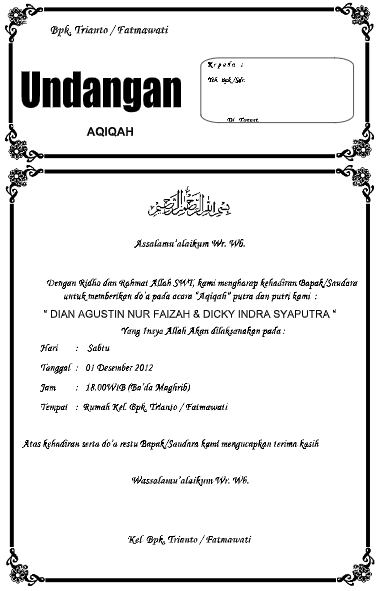 Bpk. Trianto / Fatmawati
Kepada :
Yth. Bpk/Sdr.
Undangan
Di Tempat
AQIQAH
بسم الله الرحمن الرحيم
Assalamu'alaikum Wr. Wb.
Dengan Ridho dan Rahmat Allah SWT, kami mengharap kehadiran Bapak/Saudara
untuk memberikan do'a pada acara "Aqiqah" putra dan putri kami :
" DIAN AGUSTIN NUR FAIZAH & DICKY INDRA SYAPUTRA "
Yang Insya Allah Akan dilaksanakan pada :
Hari : Sabtu
Tanggal : 01 Desember 2012
Jam : 18.00WIB (Ba'da Maghrib)
Tempat : Rumah Kel. Bpk. Trianto / Fatmawati
Atas kehadiran serta do'a restu Bapak/Saudara kami mengucapkan terima kasih
Wassalamu'alaikum Wr. Wb.
Kel. Bpk. Trianto / Fatmawati